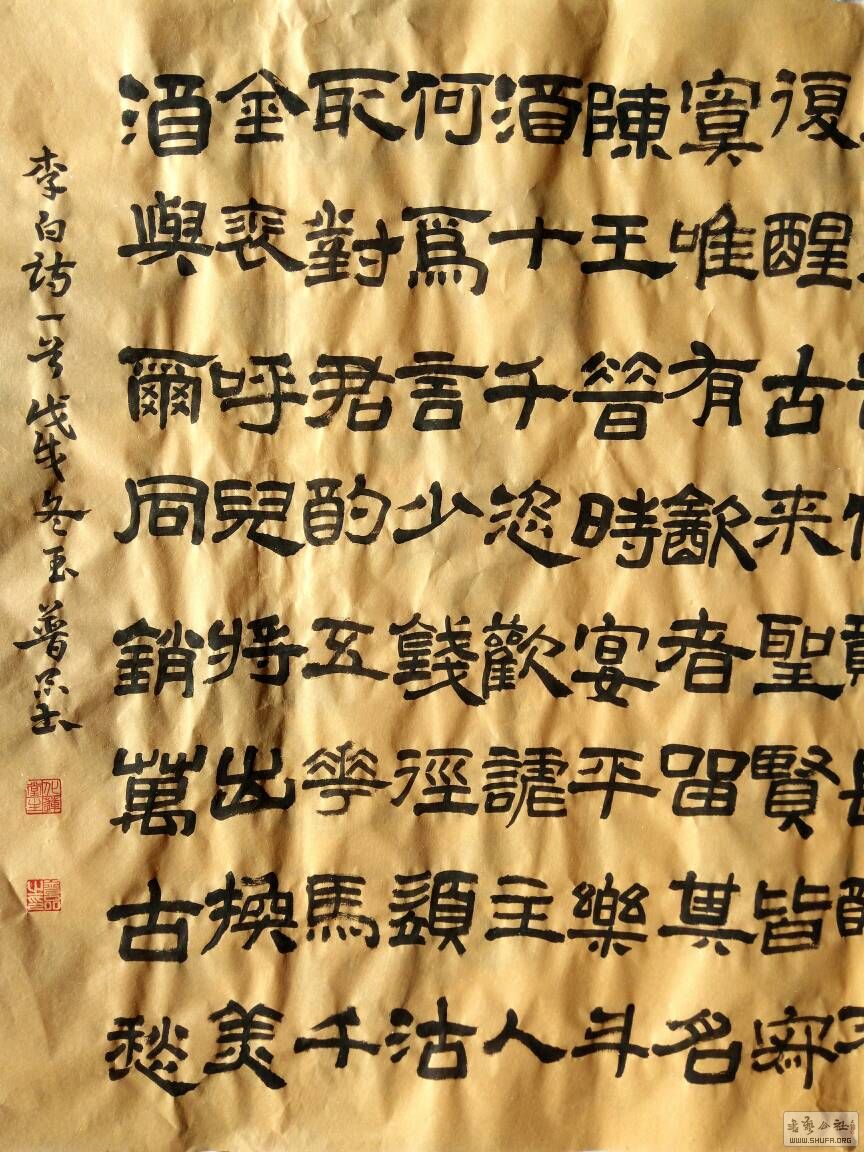 復醒古来聖賢皆寂
寞唯有飲者留其名
陳王昔時宴平樂斗
酒十千恣歡謔主人
何為言少錢徑須沽
取對君酌五華馬千
金裘呼兒將出換美
酒與爾同銷萬古愁
李白詩一首戊戌冬玉普品书
书艺公社
WWW.SHUFA.ORG